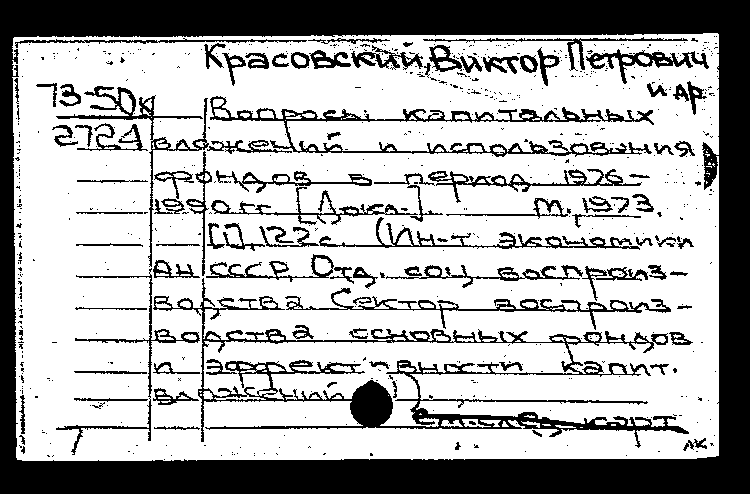 Красовский, Виктор Петрович
и др.
73-50к
2724
Вопросы капитальных
вложений и использования
фондов в период 1976-
1990 гг. [Докл.]. М., 1973.
[1], 122 с. (Ин-т экономики
АН СССР, Отд. соц. воспроиз-
водства. Сектор воспроиз-
водства основных фондов
и эффективности капит.
вложений).
см. след. карт
АК.